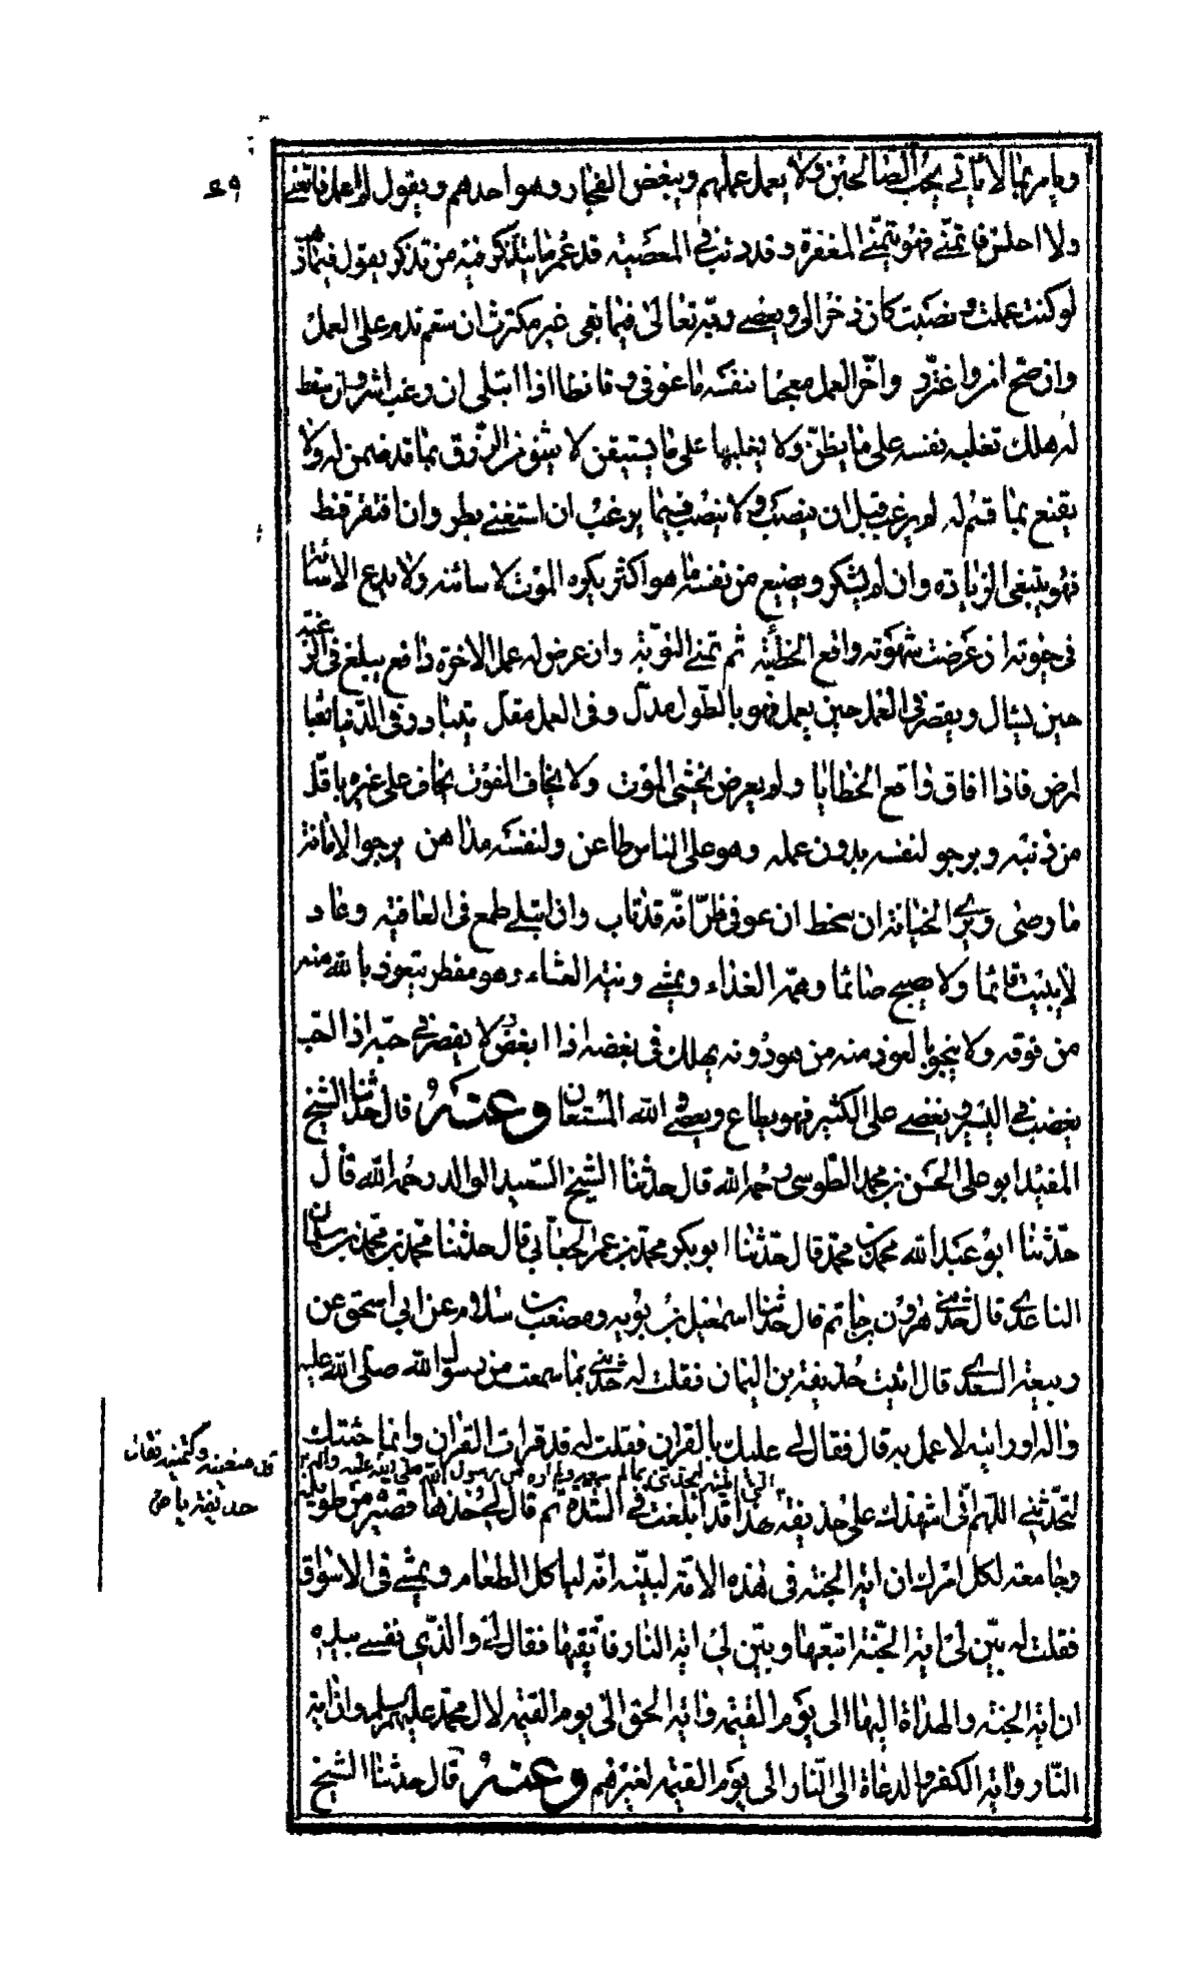 ٤٩
ويامر بما لا ياتى يحب الصالحين ولا يعمل عملهم ويبغض الفجار وهو احدهم ويقول لم اعمل فاتعنى
ولا اجلس فاتمنى فهو يتمنى المغفرة وقد دئب فى المعصية قد عمر ما يتذكر فيه من تذكر يقول فيما ذهب
لو كنت عملت ونصبت كان ذخرا لى ويعصى ربه تعالى فيما بقى غير مكترث ان سقم ندم على العمل
وان صح امن واغتر واخر العمل معجبا بنفسه ما عوفى وقانطا اذا ابتلى ان رغب اشر وان سقط
له هلك تغلبه نفسه على ما يظن ولا يغلبها على ما يستيقن لا يثق من الرزق بما قد ضمن له ولا
يقنع بما قسم له لم يرغب قبل ان ينصب ولا ينصب فيما يرغب ان استغنى بطر وان افتقر قنط
فهو يبتغى الزيادة وان لم يشكر ويضيع من نفسه ما هو اكثر يكره الموت لاسائته ولا يدع الاسائة
فى حيوته ان عرضت شهوته واقع الخطيئة ثم تمنى التوبة وان عرض له عمل الاخرة دافع يبلغ فى الرغبة
حين يسال ويقصر فى العمل حين يعمل فهو بالطول مدل وفى العمل مقل يتبادر فى الدنيا تعبا
لمرض فاذا افاق واقع الخطايا ولم يعرض يخشى الموت ولا يخاف الفوت يخاف على غيره باقل
من ذنبه ويرجو لنفسه بدون عمله وهو على الناس طاعن ولنفسه مداهن يرجو الامانة
ما رضى ويرى الخيانة ان سخط ان عوفى ظن انه قد تاب وان ابتلى طمع فى العافية وعاد
لا يبيت قائما ولا يصبح صائما وهمه الغذاء ويمسى ونيته العشاء وهو مفطر يتعوذ بالله منه
من فوقه ولا ينجو بالعوذ منه من هو دونه يهلك فى بغضه اذا ابغض ولا يقصر فى حبه اذا احب
يغضب فى اليسير ويعصى على الكثير فهو يطاع ويعصى والله المستعان وعنه قال حدثنا الشيخ
المفيد ابو على الحسن بن محمد الطوسى رحمه الله قال حدثنا الشيخ السعيد الوالد رحمه الله قال
حدثنا ابو عبد الله محمد بن محمد قال حدثنا ابو بكر محمد بن عمر الجعابى قال حدثنا محمد بن محمد بن سليمان
الباغندى قال حدثنى هرون بن حاتم قال حدثنا اسمعيل بن توبه ومصعب بن سلام عن ابى اسحق عن
ربيعة السعدى قال اتيت حذيفة بن اليمان فقلت له حدثنى بما سمعت من رسول الله صلى الله عليه
واله او رايته لاعمل به قال فقال لى عليك بالقران فقلت له قد قرات القران وانما جئتك
لتحدثنى اللهم انى اشهدك على حذيفة انى اتيته ليحدثنى بما لم اسمعه ولم اره من رسول الله صلى الله عليه واله
هذا قد ابلغت فى الشدة ثم قال لى خذها قصيرة من طويلة
وجامعة لكل امرك ان اية الجنة فى هذه الامة لبينة انه لياكل الطعام ويمشى فى الاسواق
فقلت له بين لى اية الجنة اتبعها وبين لى اية النار فاتقيها فقال لى والذى نفسى بيده
ان اية الجنة والهداة اليها الى يوم القيمة واية الحق الى يوم القيمة لال محمد عليهم السلم وان اية
النار واية الكفر والدعاة الى النار الى يوم القيمة لغيرهم وعنه قال حدثنا الشيخ
قد منعنيه وكتمنيه فقال
حذيفة يا هذا